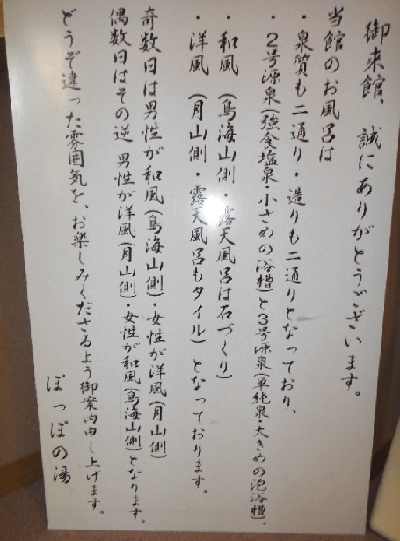 御来館、誠にありがとうございます。
当館のお風呂は
・泉質も二通り・造りも二通りとなっており、
・2号源泉(強食塩泉・小さめの浴槽)と3号源泉(単純泉・大きめの泡浴槽)、
・和風(鳥海山側・露天風呂は石づくり)
・洋風(月山側・露天風呂もタイル)となっております。
奇数日は男性が和風(鳥海山側)・女性が洋風(月山側)
偶数日はその逆 男性が洋風(月山側)・女性が和風(鳥海山側)となります。
どうぞ違った雰囲気を、お楽しみくださるよう御案内申し上げます。
ぽっぽの湯